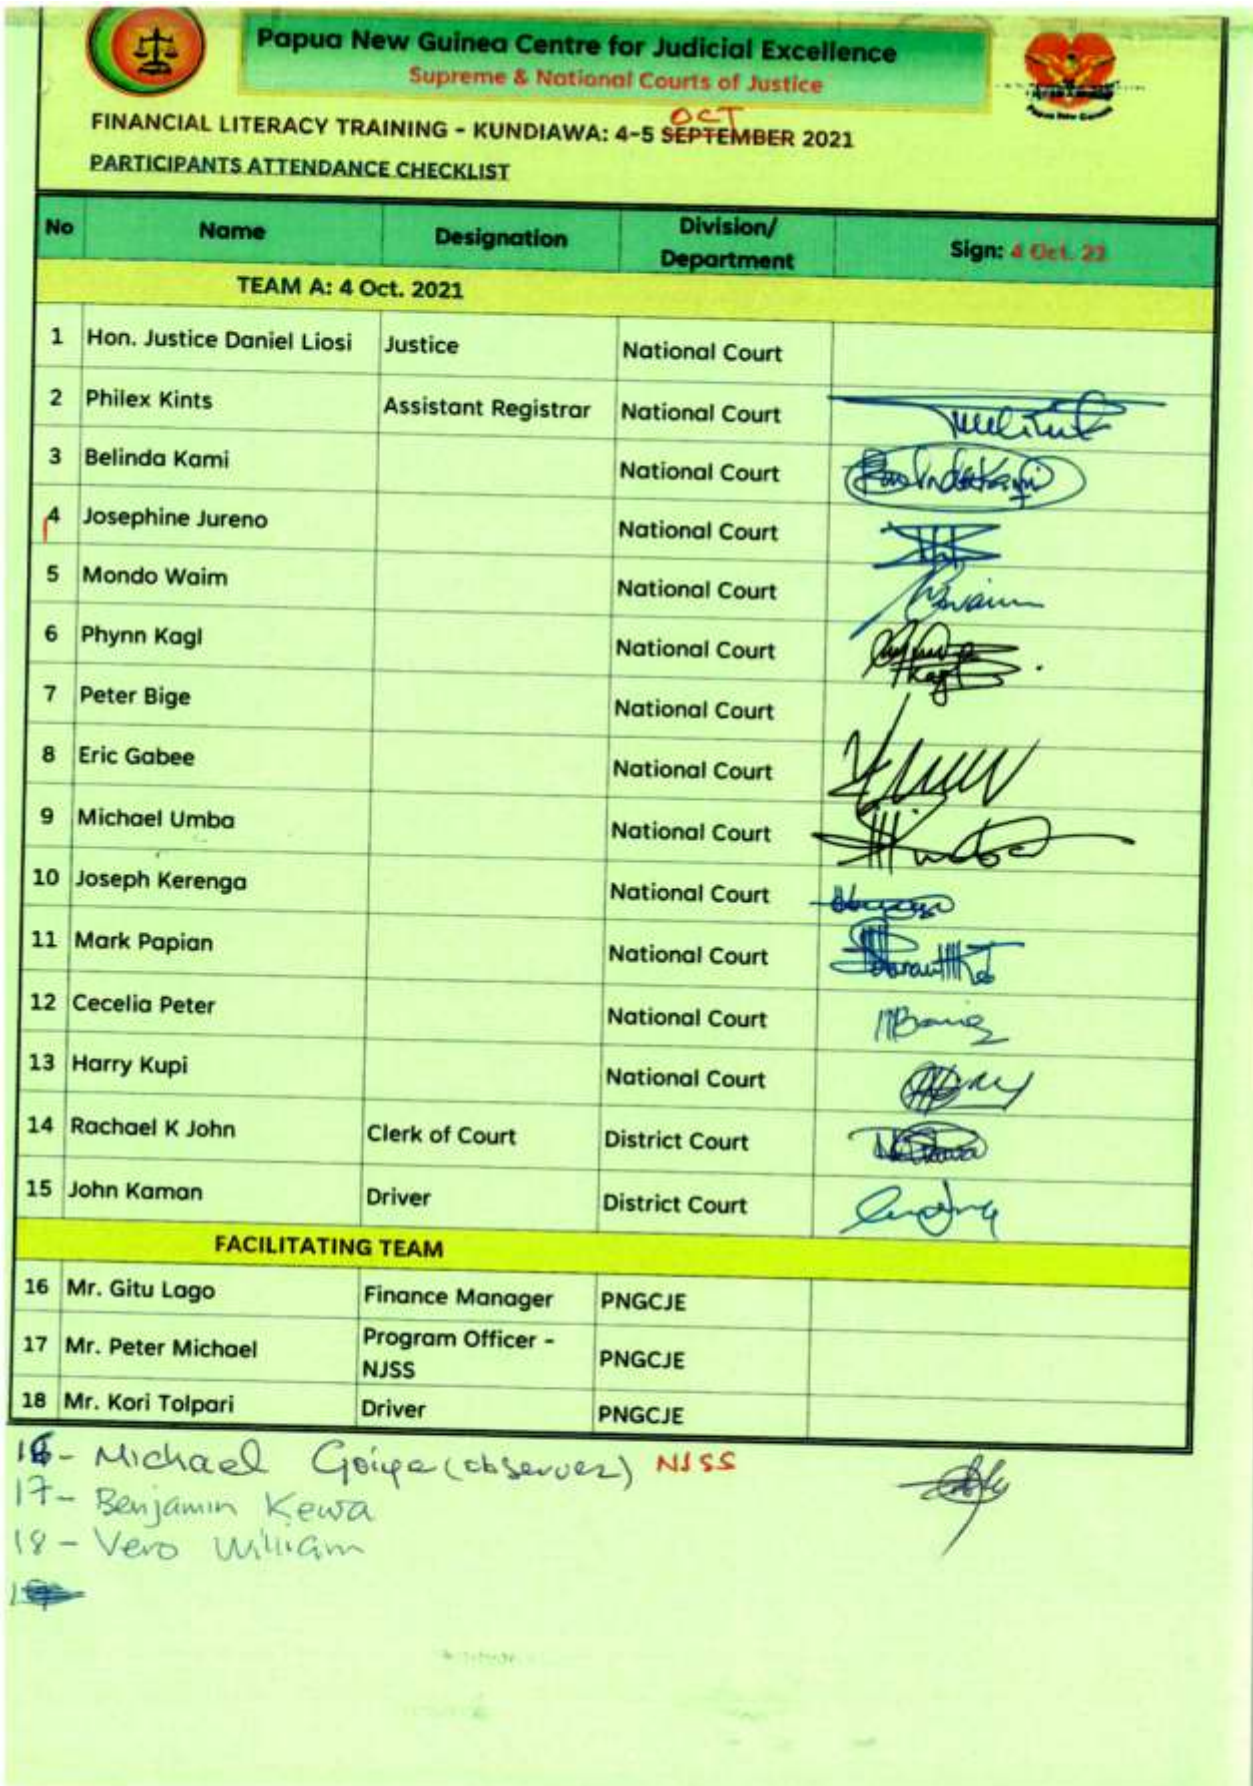 Papua New Guinea Centre for Judicial Excellence
Supreme & National Courts of Justice
Papua New Guinea
OCT
FINANCIAL LITERACY TRAINING - KUNDIAWA: 4-5 SEPTEMBER 2021
PARTICIPANTS ATTENDANCE CHECKLIST
No Name Designation Division/ Department Sign: 4 Oct. 22
TEAM A: 4 Oct. 2021
1 Hon. Justice Daniel Liosi Justice National Court
2 Philex Kints Assistant Registrar National Court
3 Belinda Kami National Court
4 Josephine Jureno National Court
5 Mondo Waim National Court
6 Phynn Kagl National Court
7 Peter Bige National Court
8 Eric Gabee National Court
9 Michael Umba National Court
10 Joseph Kerenga National Court
11 Mark Papian National Court
12 Cecelia Peter National Court
13 Harry Kupi National Court
14 Rachael K John Clerk of Court District Court
15 John Kaman Driver District Court
FACILITATING TEAM
16 Mr. Gitu Lago Finance Manager PNGCJE
17 Mr. Peter Michael Program Officer - NJSS PNGCJE
18 Mr. Kori Tolpari Driver PNGCJE
16 - Michael Goiye (observer) NJSS
17 - Benjamin Kewa
18 - Vero William